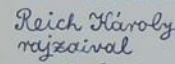 Reich Károly
rajzaival